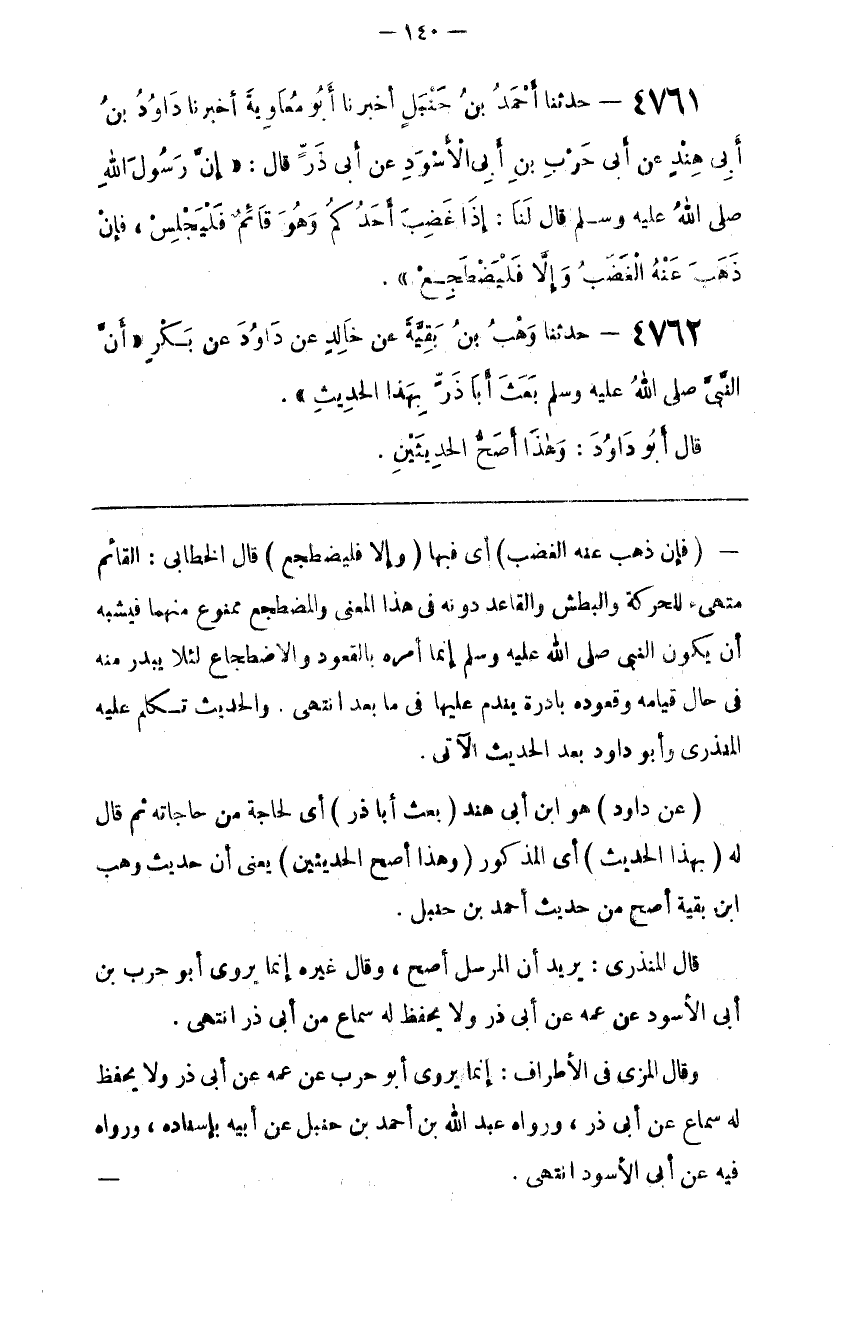 — ١٤٠ —
٤٧٦١ — حدثنا أَحْمَدُ بنُ حَنْبَلٍ أخبرنا أَبُو مُعَاوِيةَ أخبرنا دَاوُدُ بنُ
أَبِى هِنْدٍ عن أَبى حَرْبِ بنِ أَبِى الْأَسْوَدِ عن أَبى ذَرٍّ قال : « إِنَّ رَسُولَ اللهِ
صلى اللهُ عليه وسلم قال لَنَا : إِذَا غَضِبَ أَحَدُكُمْ وَهُوَ قَائِمٌ فَلْيَجْلِسْ ، فإِنْ
ذَهَبَ عَنْهُ الْغَضَبُ وَإِلَّا فَلْيَضْطَجِعْ » .
٤٧٦٢ — حدثنا وَهْبُ بنُ بَقِيَّةَ عن خَالِدٍ عن دَاوُدَ عن بَكْرٍ « أَنَّ
النَّبِىَّ صلى اللهُ عليه وسلم بَعَثَ أَبَا ذَرٍّ بِهَذا الحدِيثِ » .
قال أَبُو دَاوُدَ : وَهٰذَا أَصَحُّ الحدِيثَيْنِ .
— ( فإن ذهب عنه الغضب ) أى فبها ( وإلا فليضطجع ) قال الخطابى : القائم
متهىء للحركة والبطش والقاعد دونه فى هذا المعنى والمضطجع ممنوع منهما فيشبه
أن يكون النبى صلى الله عليه وسلم إنما أمره بالقعود والاضطجاع لئلا يبدر منه
فى حال قيامه وقعوده بادرة يندم عليها فى ما بعد انتهى . والحديث تكلم عليه
المنذرى وأبو داود بعد الحديث الآتى .
( عن داود ) هو ابن أبى هند ( بعث أبا ذر ) أى لحاجة من حاجاته ثم قال
له ( بهذا الحديث ) أى المذكور ( وهذا أصح الحديثين ) يعنى أن حديث وهب
ابن بقية أصح من حديث أحمد بن حنبل .
قال المنذرى : يريد أن المرسل أصح ، وقال غيره إنما يروى أبو حرب بن
أبى الأسود عن عمه عن أبى ذر ولا يحفظ له سماع من أبى ذر انتهى .
وقال المزى فى الأطراف : إنما يروى أبو حرب عن عمه عن أبى ذر ولا يحفظ
له سماع عن أبى ذر ، ورواه عبد الله بن أحمد بن حنبل عن أبيه بإسناده ، ورواه
فيه عن أبى الأسود انتهى . —